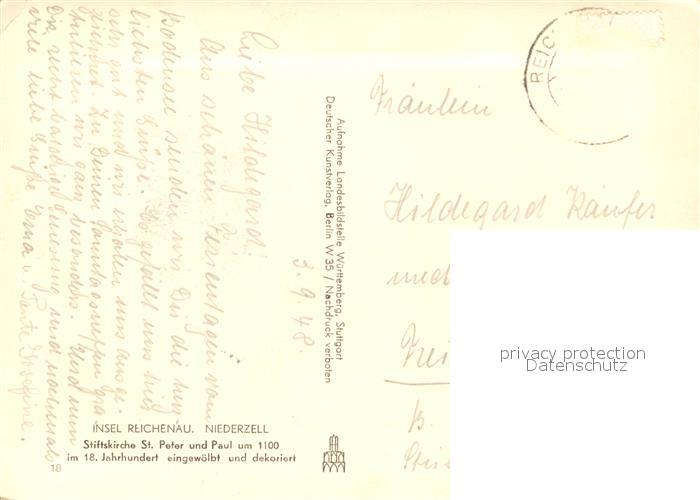 Liebe Hildegard!
Aus schönen Ferientagen vom
Bodensee senden wir Dir die herz
lichsten Grüße. Es gefällt uns hier
sehr gut und wir erholen uns ausge-
zeichnet. Zu Deinem
wir ganz besonders. Und nun
Dir recht baldige Genesung und nochmals
viele liebe Grüße Oma u. Tante Josefine.
3.9.48.
Aufnahme Landesbildstelle Württemberg, Stuttgart
Deutscher Kunstverlag, Berlin W 35 / Nachdruck verboten
REIC
Fräulein
Hildegard Käufer
privacy protection
Datenschutz
INSEL REICHENAU. NIEDERZELL
Stiftskirche St. Peter und Paul um 1100
im 18. Jahrhundert eingewölbt und dekoriert
18